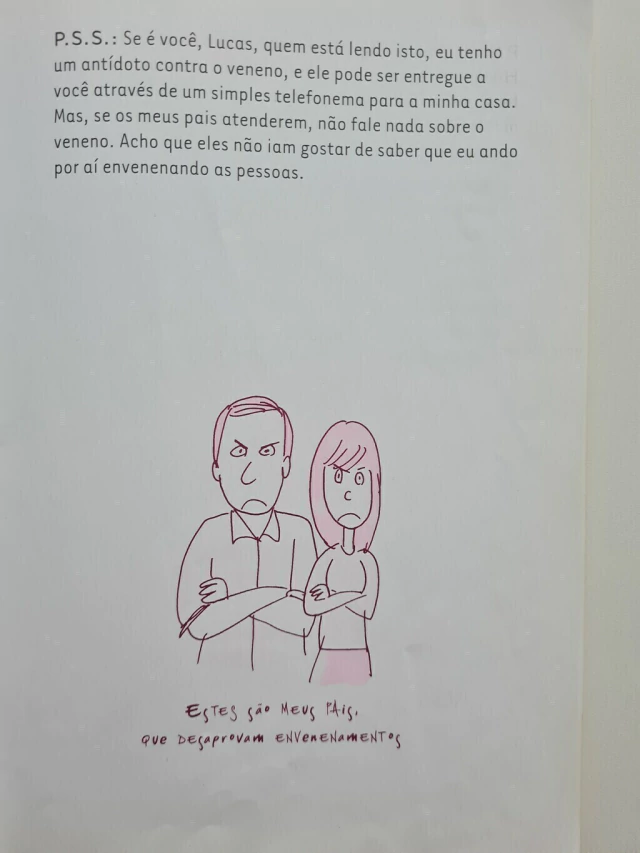 P.S.S.: Se é você, Lucas, quem está lendo isto, eu tenho
um antídoto contra o veneno, e ele pode ser entregue a
você através de um simples telefonema para a minha casa.
Mas, se os meus pais atenderem, não fale nada sobre o
veneno. Acho que eles não iam gostar de saber que eu ando
por aí envenenando as pessoas.
ESTES São MEUS PAIS,
QUE DESaprovam ENVENENAMENTOS